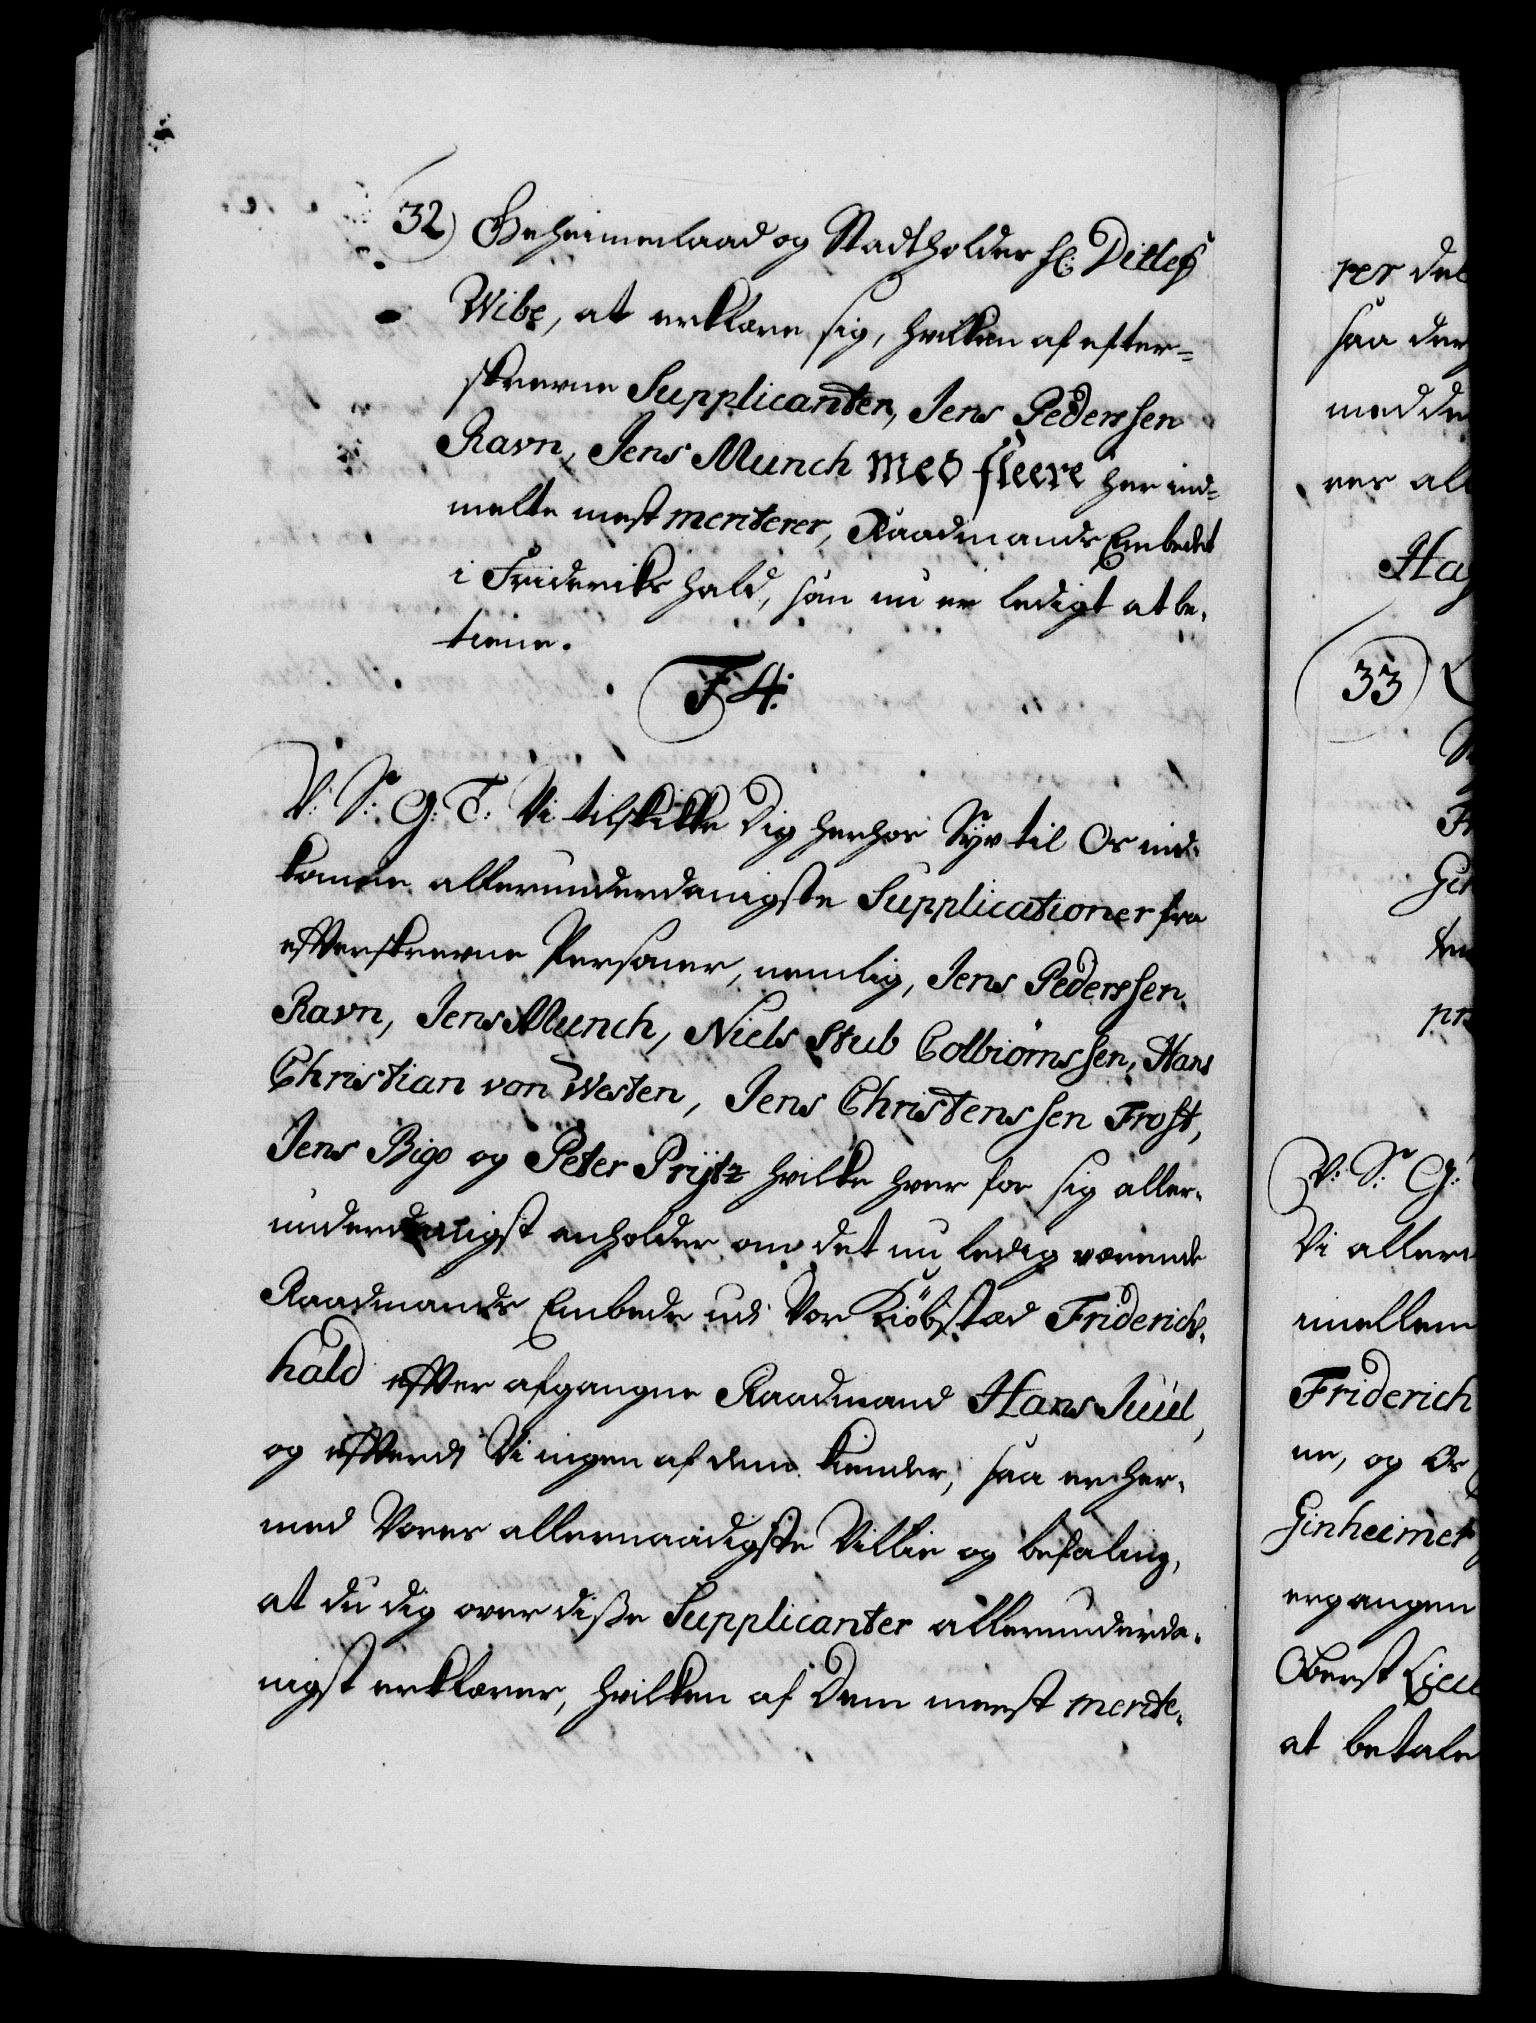 32) Geheimeraad og Stadtholder H: Ditlef
Wibe, at erklære sig, hvilken af efter=
skrevne Supplicanter, Jens Pederssen
Ravn, Jens Munch med fleere her ind=
melte mest meriterer, Raadmands Embedet
i Friderikshald, som nu er ledigt at be-
tiene.
F 4:
V: S: G: T: Vi tilskikke Dig herhos Syv til Os ind-
komne allerunderdanigste Supplicationer fra
efterskrevne Personer, nemlig, Jens Pederssen
Ravn, Jens Munch, Niels Stub Colbiørnssen, Hans
Christian von Westen, Jens Christenssen Frost,
Jens Bigo og Peter Prijtz hvilke hver for sig aller-
underdanigst anholder om det nu ledig værende
Raadmands Embede udi Vor Kiøbstæd Friderichs-
hald efter afgangne Raadmand Hans Juul,
og efterdi Vi ingen af dem kiender, saa er her-
med Vores allernaadigste Villie og befaling,
at du dig over diße Supplicanter allerunderda-
nigst erklærer, hvilken af Dem meest merite-
per del
saa der
med de
res all
Hag
33)
V: S: G:
Vi aller
imellem
Friderich
ne, og Os
Ginheimer
ergangen
Oberst Lieu
at betale